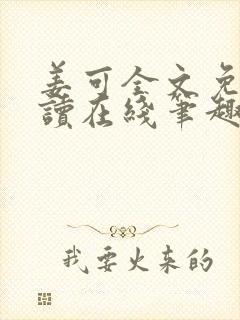 姜可全文免
讀在綫筆趣
我要火来的